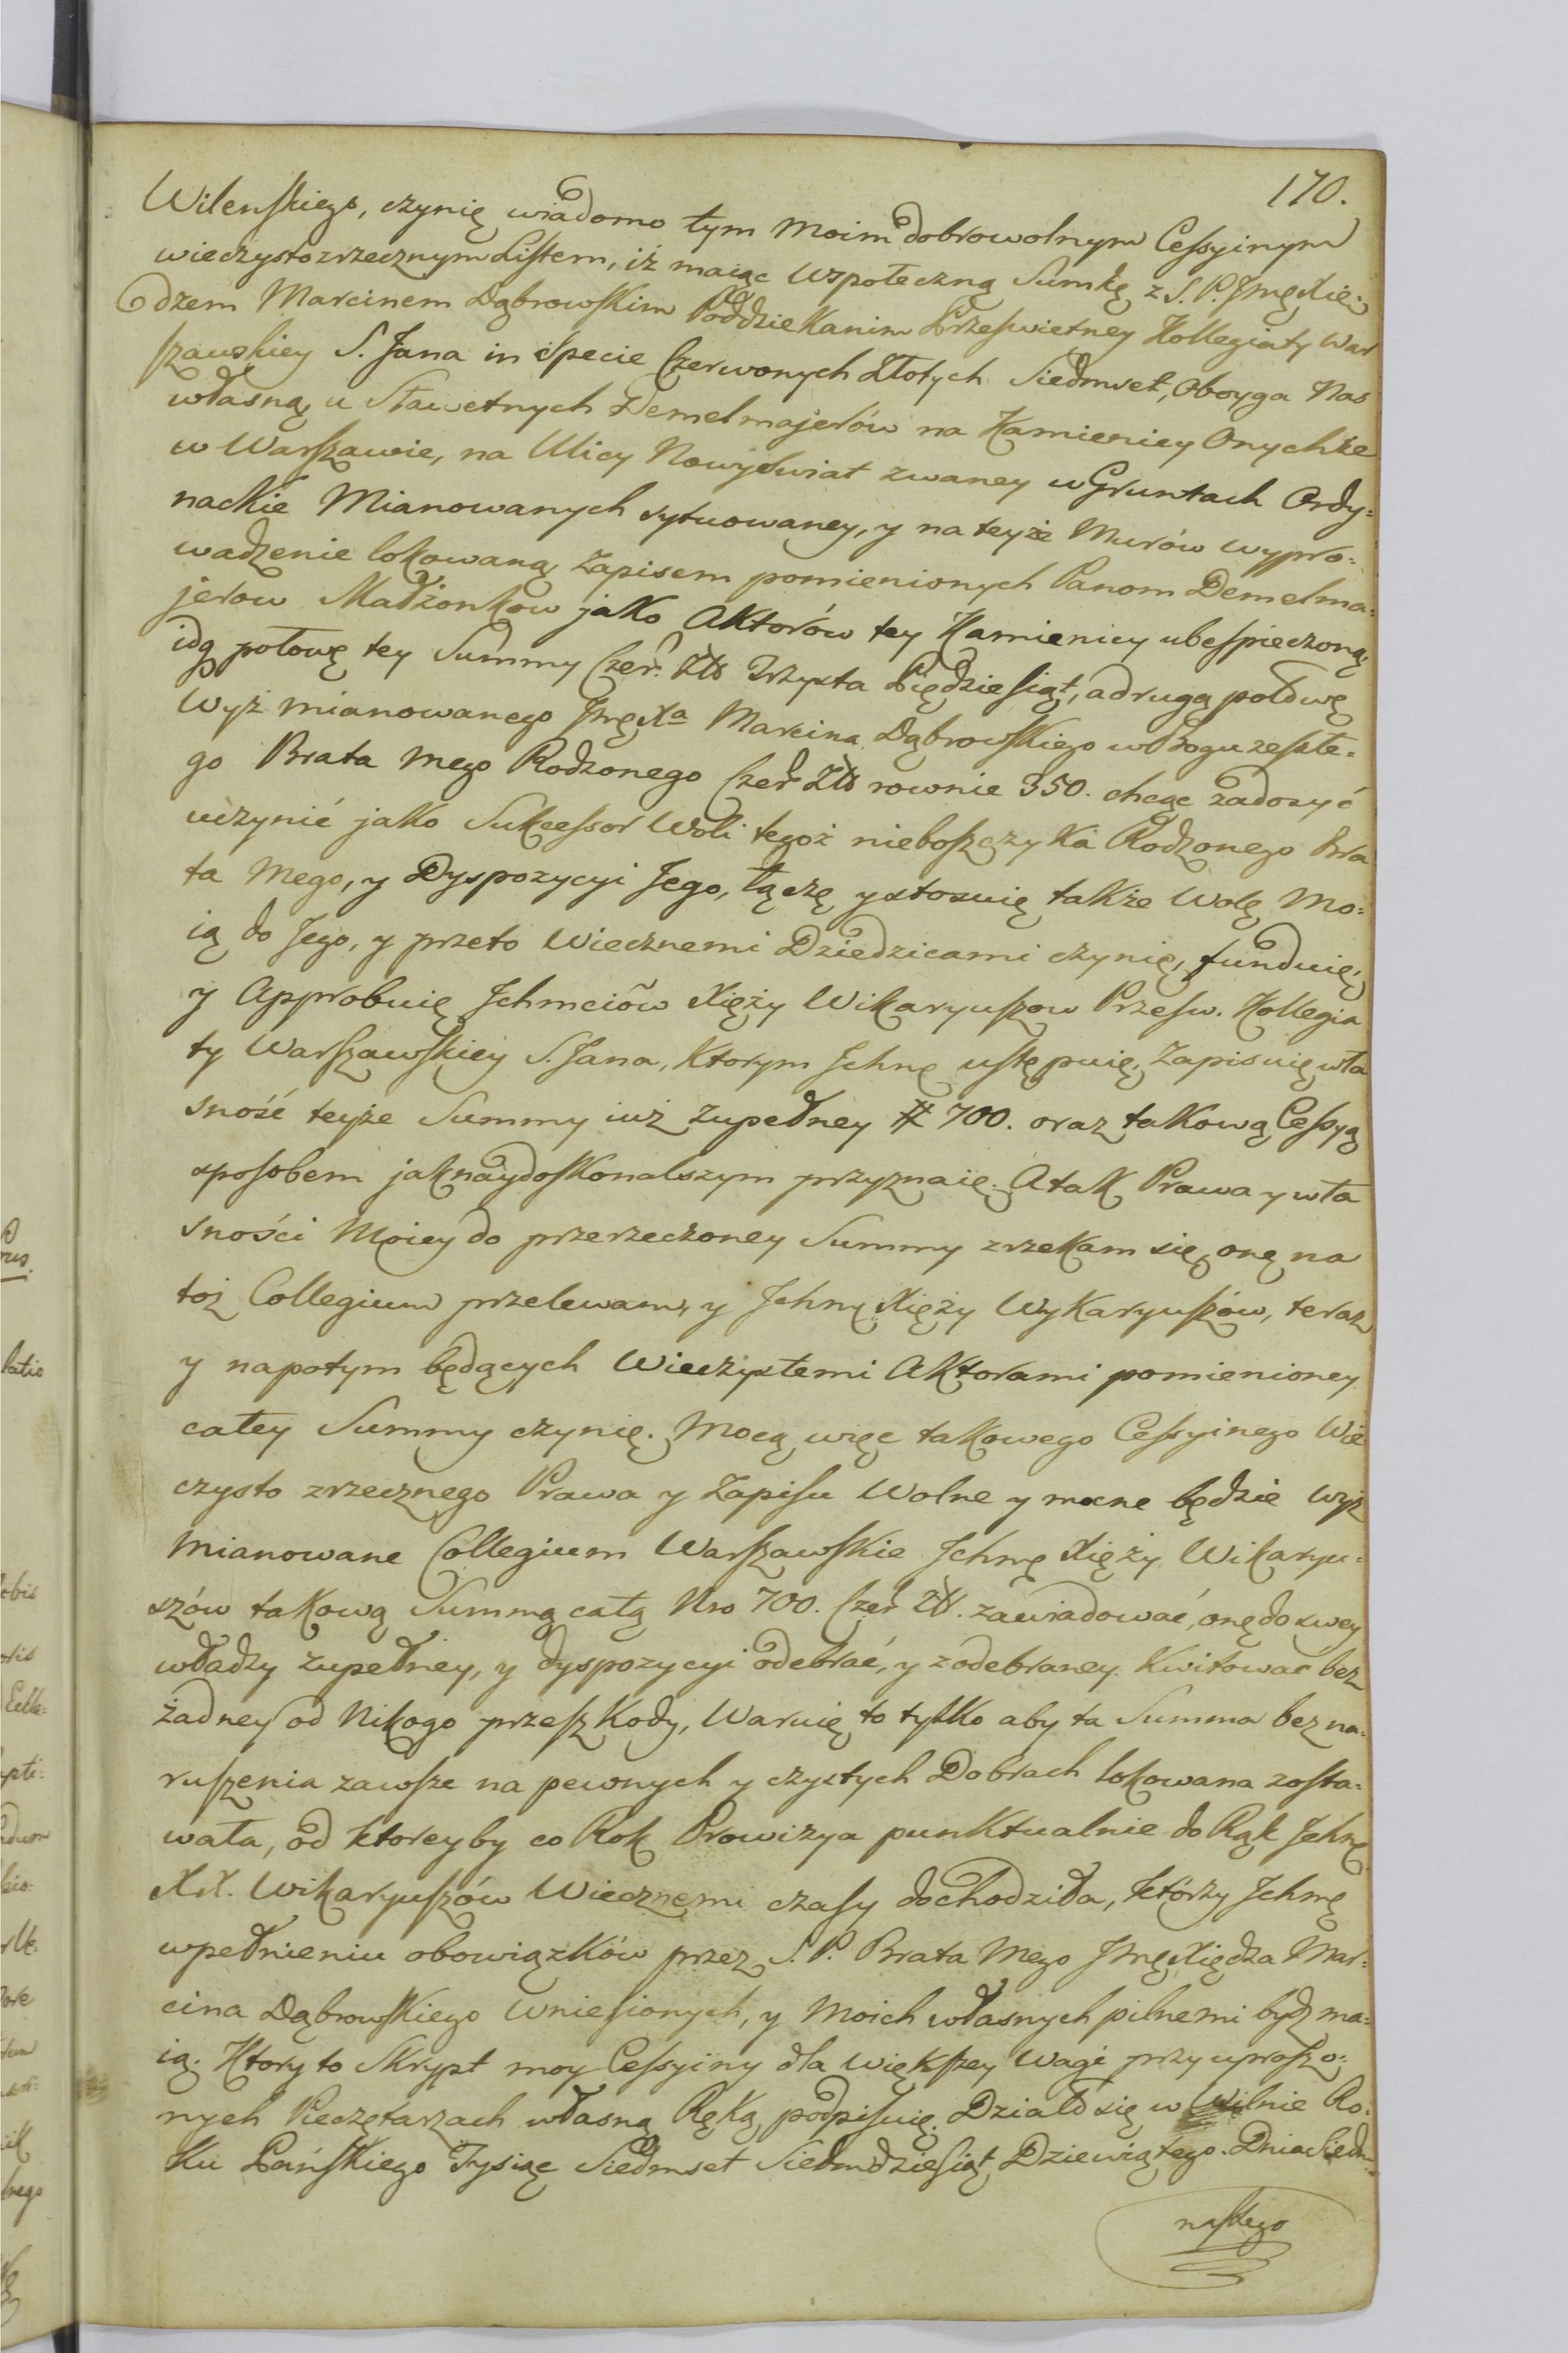 170.
Wilenskiego, czynię wiadomo tym moim dobrowolnym Cessyinym
wieczystozrzecznym Listem, iż maiąc wspołeczną Summę z S. P. Jmę Xię:
dzem Marcinem Dąbrowskim Poddziekanim Prześwietney Kollegiaty War
szawskiey S. Jana in specie Czerwonych Złotych Siedmset, oboyga Nas
własną, u Sławetnych Demelmajerów na Kamienicy Onychże
w Warszawie, na Ulicy Nowyswiat zwaney w Gruntach Ordy:
nackie Mianowanych sytuowaney, y na teyże Murów wypro:
wadzenie lokowaną, Zapisem pomienionych Panom Demelma:
jerow Małżonkow jako Aktorów tey Kamienicy ubespieczoną,
idą połowę tey Summy Czer. Złł Trzysta Pięćdziesiąt, a drugą połowę
wyż mianowanego Jmę Xa Marcina Dąbrowskiego w Bogu zeszłe:
go Brata mego Rodzonego Czer Złł rownie 350. chcąc zadosyć
uczynić jako Sukcessor Woli tegoż nieboszczyka Rodzonego Bra
ta Mego, y Dyspozycyi Jego, łączę y stosuię także Wolę Mo:
ią do Jego, y przeto Wiecznemi Dziedzicami czynię, funduię,
y Approbuię Jchmciów Xięży Wikaryuszow Przesw. Kollegia
ty Warszawskiey S. Jana, Ktorym Jchmę ustępuię, Zapisuię wła
sność teyże Summy iuż zupełney # 700. oraz takową Cessyą
sposobem jaknaydoskonalszym przyznaię. A tak Prawa y wła
sności Moiey do przerzeczoney Summy zrzekam się, onę na
toż Collegium przelewam, y Jchmę Xięży Wykaryuszów, teraz
y napotym będących Wieczystemi Aktorami pomienioney
całey Summy czynię. Mocą więc takowego Cessyinego Wie
czysto zrzecznego Prawa y Zapisu Wolne y mocne będzie wyż
Mianowane Collegium Warszawskie Jchmę Xięży Wikaryu:
szów takową Summą całą Nro 700. Czer Złł. zawiadować, onę do swey
władzy zupełney, y dyspozycyi odebrać, y z odebraney Kwitować bez
żadney od Nikogo przeszkody, Waruię to tylko aby ta Summa bez na:
ruszenia zawsze na pewnych y czystych Dobrach lokowana zosta:
wała, od ktoreyby co Rok Prowizya punktualnie do Rąk Jchmę
XX. Wikaryuszów Wiecznemi czasy dochodziła, którzy Jchmę
wpełnieniu obowiązków przez S. P. Brata Mego Jmę Xiędza Mar:
cina Dąbrowskiego Wniesionych, y Moich własnych pilnemi bydz ma:
ią. Ktory to Skrypt moy Cessyiny dla większey wagi przy uproszo:
nych Pieczętarzach własną Ręką podpisuię. Działo się w Wilnie Ro:
ku Pańskiego Tysiąc Siedmset Siedmdziesiąt Dziewiątego. Dnia Siedm:
nastego